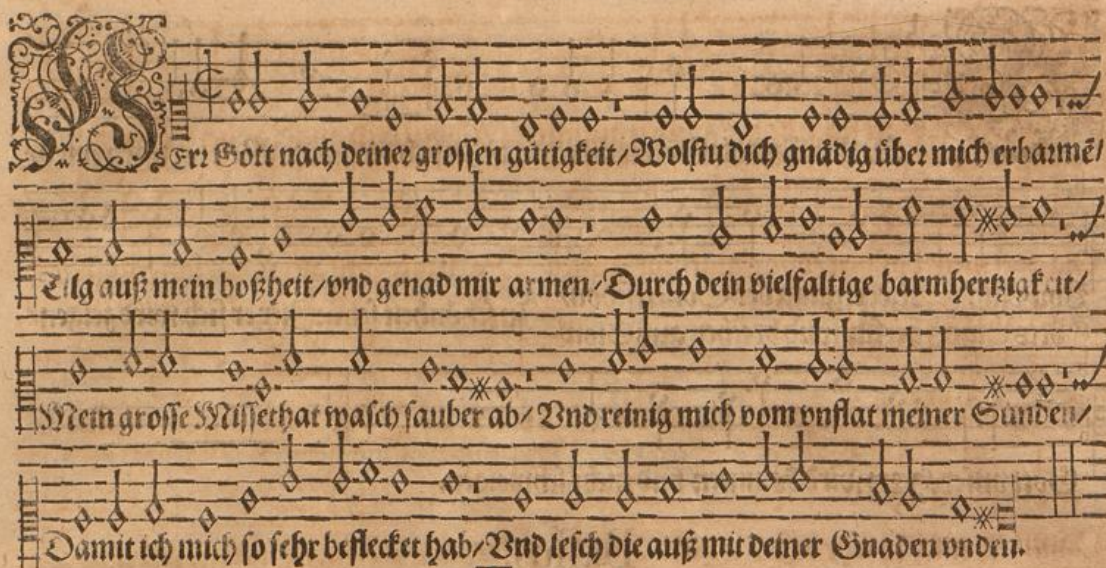 HErr Gott nach deiner grossen gütigkeit/Wolstu dich gnädig über mich erbarmẽ/
Tilg auß mein boßheit/vnd genad mir armen/Durch dein vielfaltige barmhertzigkeit/
Mein grosse Missethat wasch sauber ab/Vnd reinig mich vom vnflat meiner Sünden/
Damit ich mich so sehr beflecket hab/Vnd lesch die auß mit deiner Gnaden vnden.